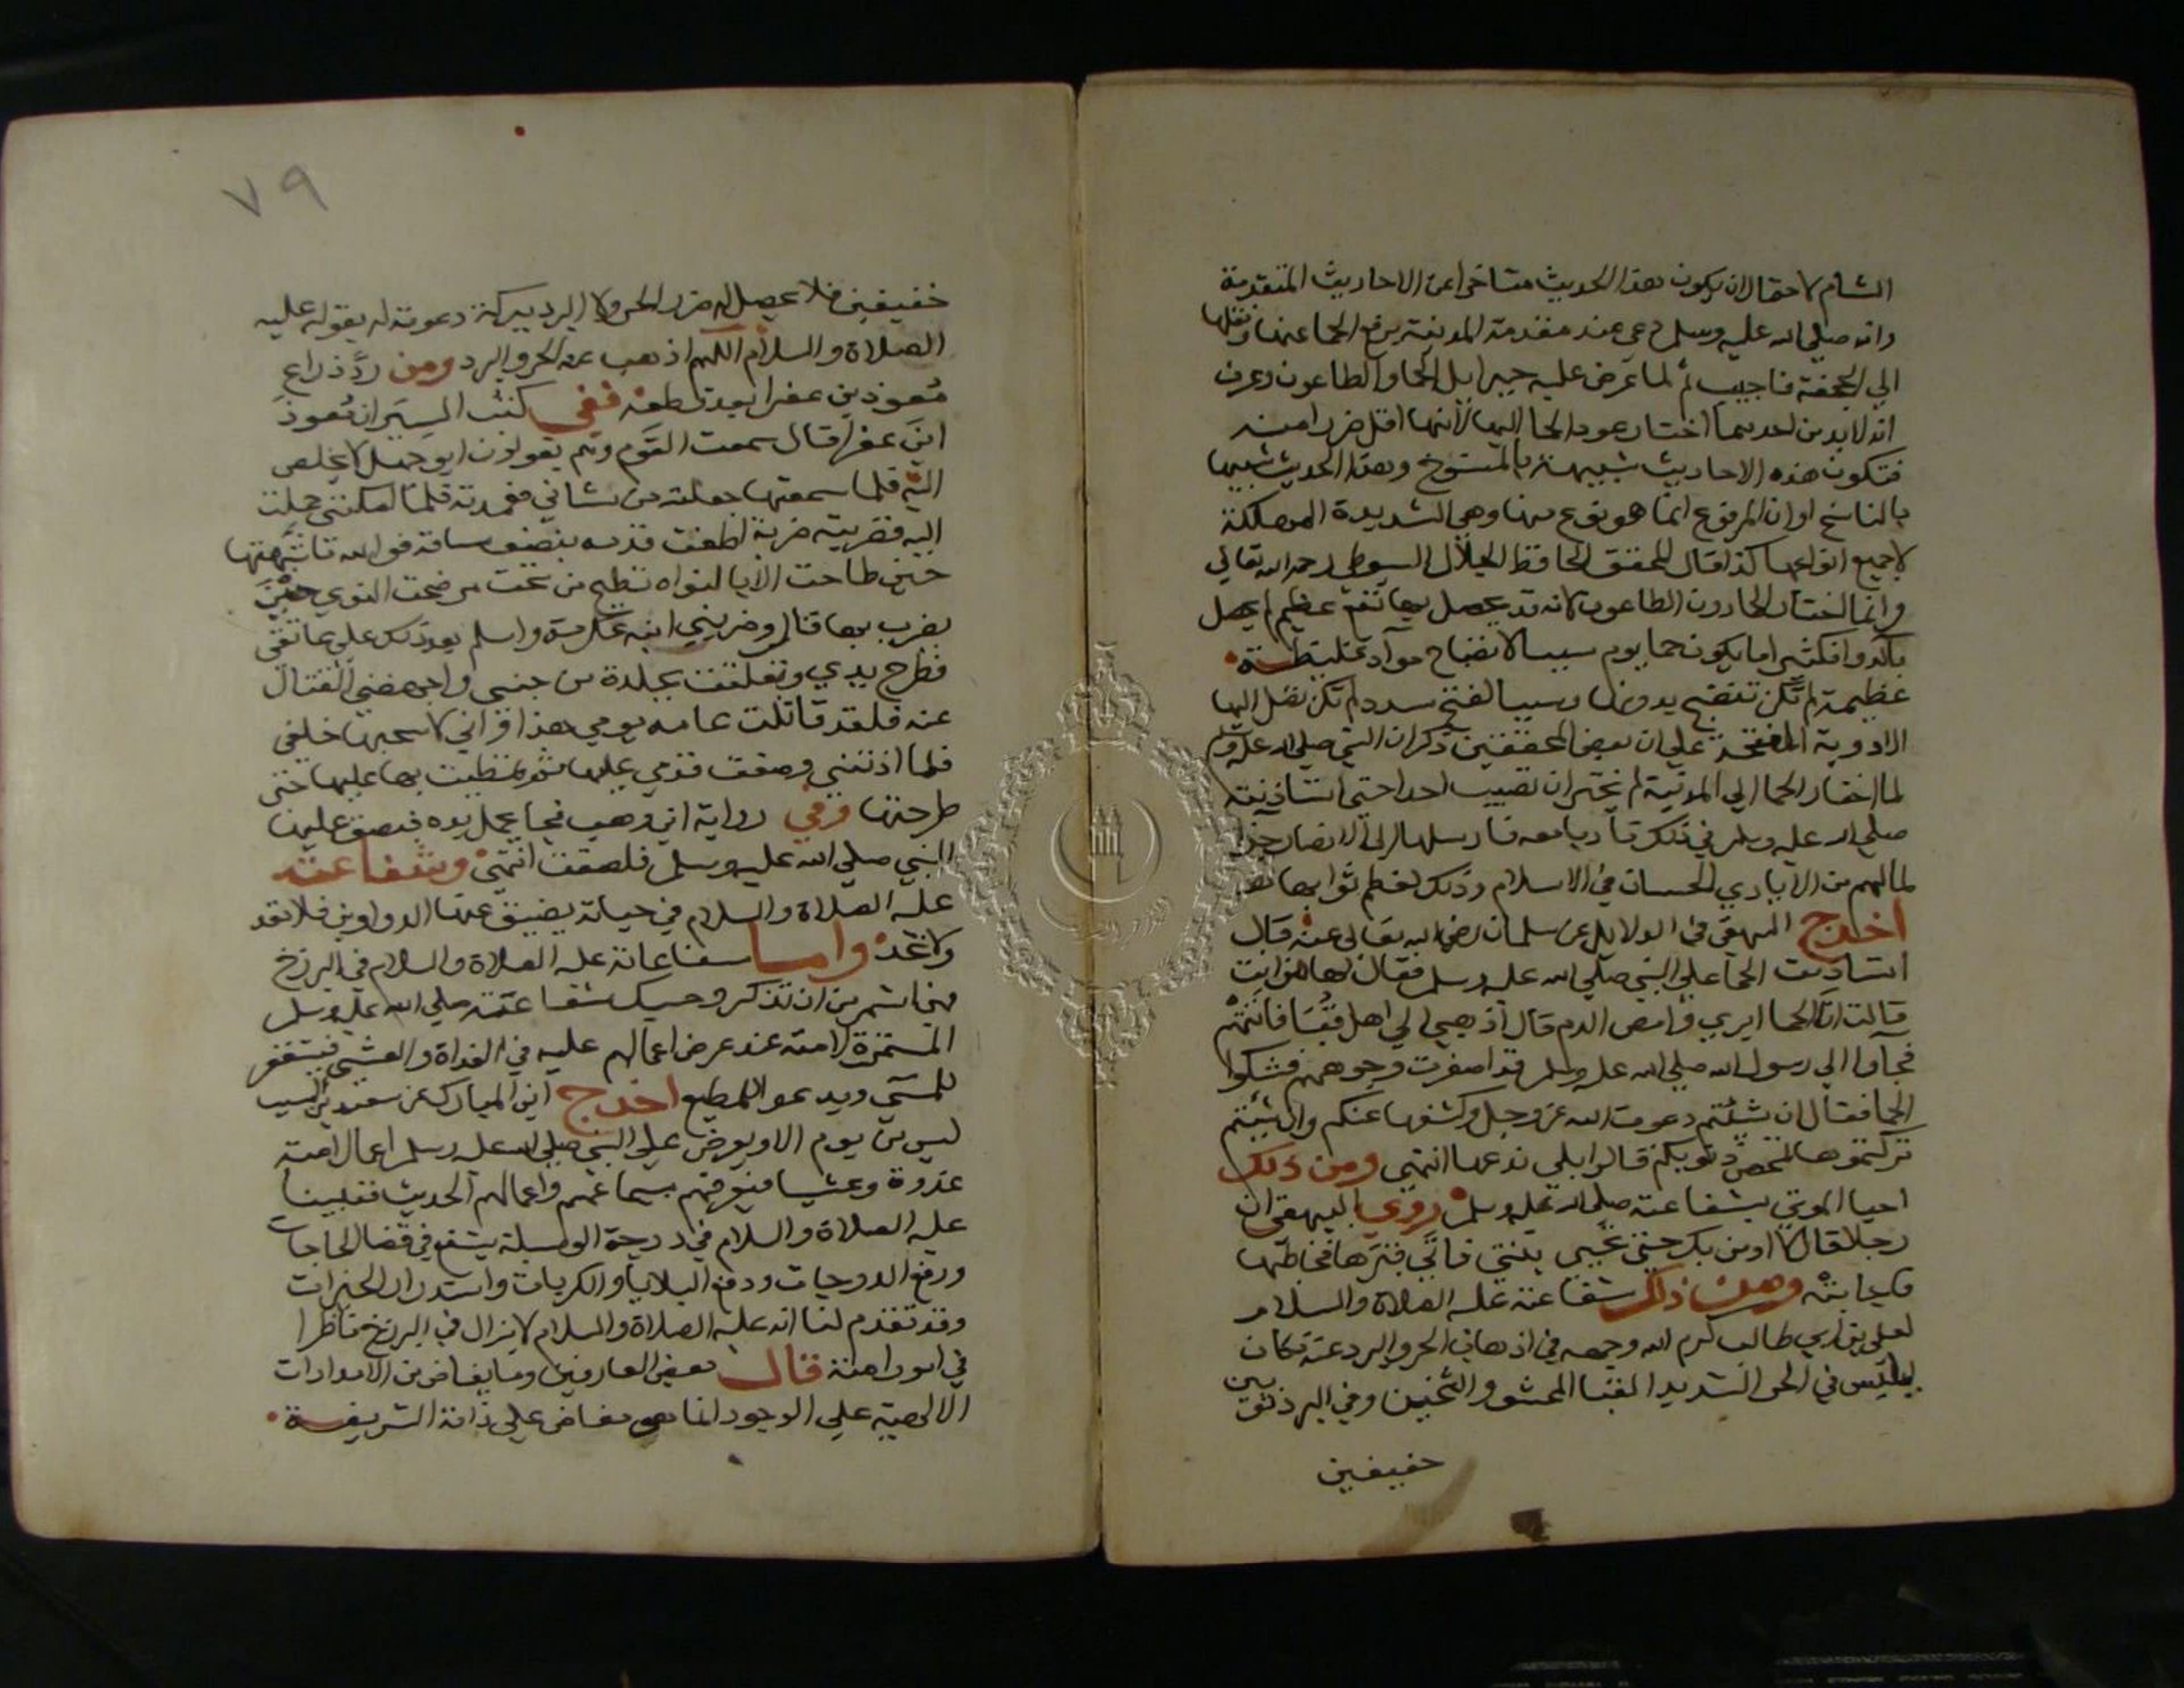 الشام لاحتمال ان يكون هذا الحديث متاخرا عن الاحاديث المتقدمة
وانه صلي الله عليه وسلم دعى عند مقدمة المدينة برفع الحما عنها ونقلها
الي الجحفة فاجيب ثم لما عرض عليه جبرايل الحما والطاعون وعرف
انه لابد من احدهما اختار عود الحما اليها لانها اقل ضررا منه
فتكون هذه الاحاديث شبيهة بالمنسوخ وهذا الحديث شبيها
بالناسخ او ان المرفوع انما هو نوع منها وهي الشديدة المهلكة
لا جميع انواعها كذا قال المحقق الحافظ الجلال السيوطي رحمه الله تعالي
وانما اختار الحما دون الطاعون لانه قد يحصل بها نفع عظيم لم يحصل
باكدوا فكثيرا ما يكون حما يوم سببا لانفتاح مواد غليظة
عظيمة لم تكن تنفتح بدونها وسببا لفتح سدد لم تكن تصل اليها
الادوية المفتحة علي ان بعض المحققين ذكر ان النبي صلي الله عليه وسلم
لما اختار الحما الي المدينة لم يختر ان تصيب احدا حتي استاذنته
صلي الله عليه وسلم في ذلك تادبا معه فارسلها الي الانصار جزا
لمالهم من الايادي الحسان في الاسلام وذلك لعظم ثوابها
اخرج البيهقي في الدلايل عن سلمان رضي الله تعالي عنه قال
استاذنت الحما علي النبي صلي الله عليه وسلم فقال لها من انت
قالت انا الحما ابري وامص الدم قال اذهبي الي اهل قبا فاتتهم
فجآوا الي رسول الله صلي الله عليه وسلم قد اصفرت وجوههم فشكوا
الحما فقال ان شئتم دعوت الله عز وجل وكشفها عنكم وان شيتم
تركتموها لتمحص ذنوبكم قالوا بلي ندعها انتهي ومن ذلك
احيا الموتي بشفاعته صلي الله عليه وسلم روي البيهقي ان
رجلا قال لا اومن بك حتي تحيي بنتي فاتي قبرها فخاطبها
فاجابته ومن ذلك شفاعته عليه الصلاة والسلام
لعلي بن ابي طالب كرم الله وجهه في اذهاب الحر والبرد عنه فكان
يلبس في الحر الشديد القبا المحشو والثخين وفي البرد ثوبين
خفيفين
٧٩
خفيفين فلا يحصل له ضرر الحر ولا البرد ببركة دعوته له بقوله عليه
الصلاة والسلام اللهم اذهب عنه الحر والبرد ومن ردّ ذراع
معوذ بن عفرا بعد قطعه ففي كتب السير ان معوذ
ابن عفرا قال سمعت القوم وهم يقولون ابو جهل لا يخلص
اليه فلما سمعتها جعلته من شاني فعمدته فلما امكنني حملت
اليه فضربته ضربة اطنت قدمه بنصف ساقه فوالله ما شبهتها
حين طاحت الا بالنواه تطيح من تحت مرضخت النوي حين
يضرب بها قال وضربني ابنه عكرمة واسلم بعد ذلك علي عاتقي
فطرح يدي وتعلقت بجلدة من جنبي واجهضني القتال
عنه فلقد قاتلت عامه يومي هذا واني لاسحبها خلفي
فلما اذتني وضعت قدمي عليها ثم تمطيت بها عليها حتي
طرحتها وفي رواية ابن وهب فجا يحمل يده فبصق عليها
النبي صلي الله عليه وسلم فلصقت انتهي وشفاعته
عليه الصلاة والسلام في حياته يضيق عنها الدواوين فلا تعد
ولا تحد واما شفاعاته عليه الصلاة والسلام في البرزخ
فهي اشهر من ان تذكر وحسبك شفاعته صلي الله عليه وسلم
المستمرة لامته عند عرض اعمالهم عليه في الغداة والعشي فيستغفر
للمسي ويدعو للمطيع اخرج ابن المبارك عن سعيد بن المسيب
ليس من يوم الا ويعرض علي النبي صلي الله عليه وسلم اعمال امته
غدوة وعشيا فيعرفهم بسيماهم واعمالهم الحديث فنبينا
عليه الصلاة والسلام في درجة الوسيلة يشفع في قضا الحاجات
ورفع الدرجات ودفع البلايا والكربات واستدرار الخيرات
وقد تقدم لنا انه عليه الصلاة والسلام لا يزال في البرزخ ناظرا
في امور امته قال بعض العارفين وما يفاض من الامدادات
الالهية علي الوجود انما هي مفاض علي ذاته الشريفة